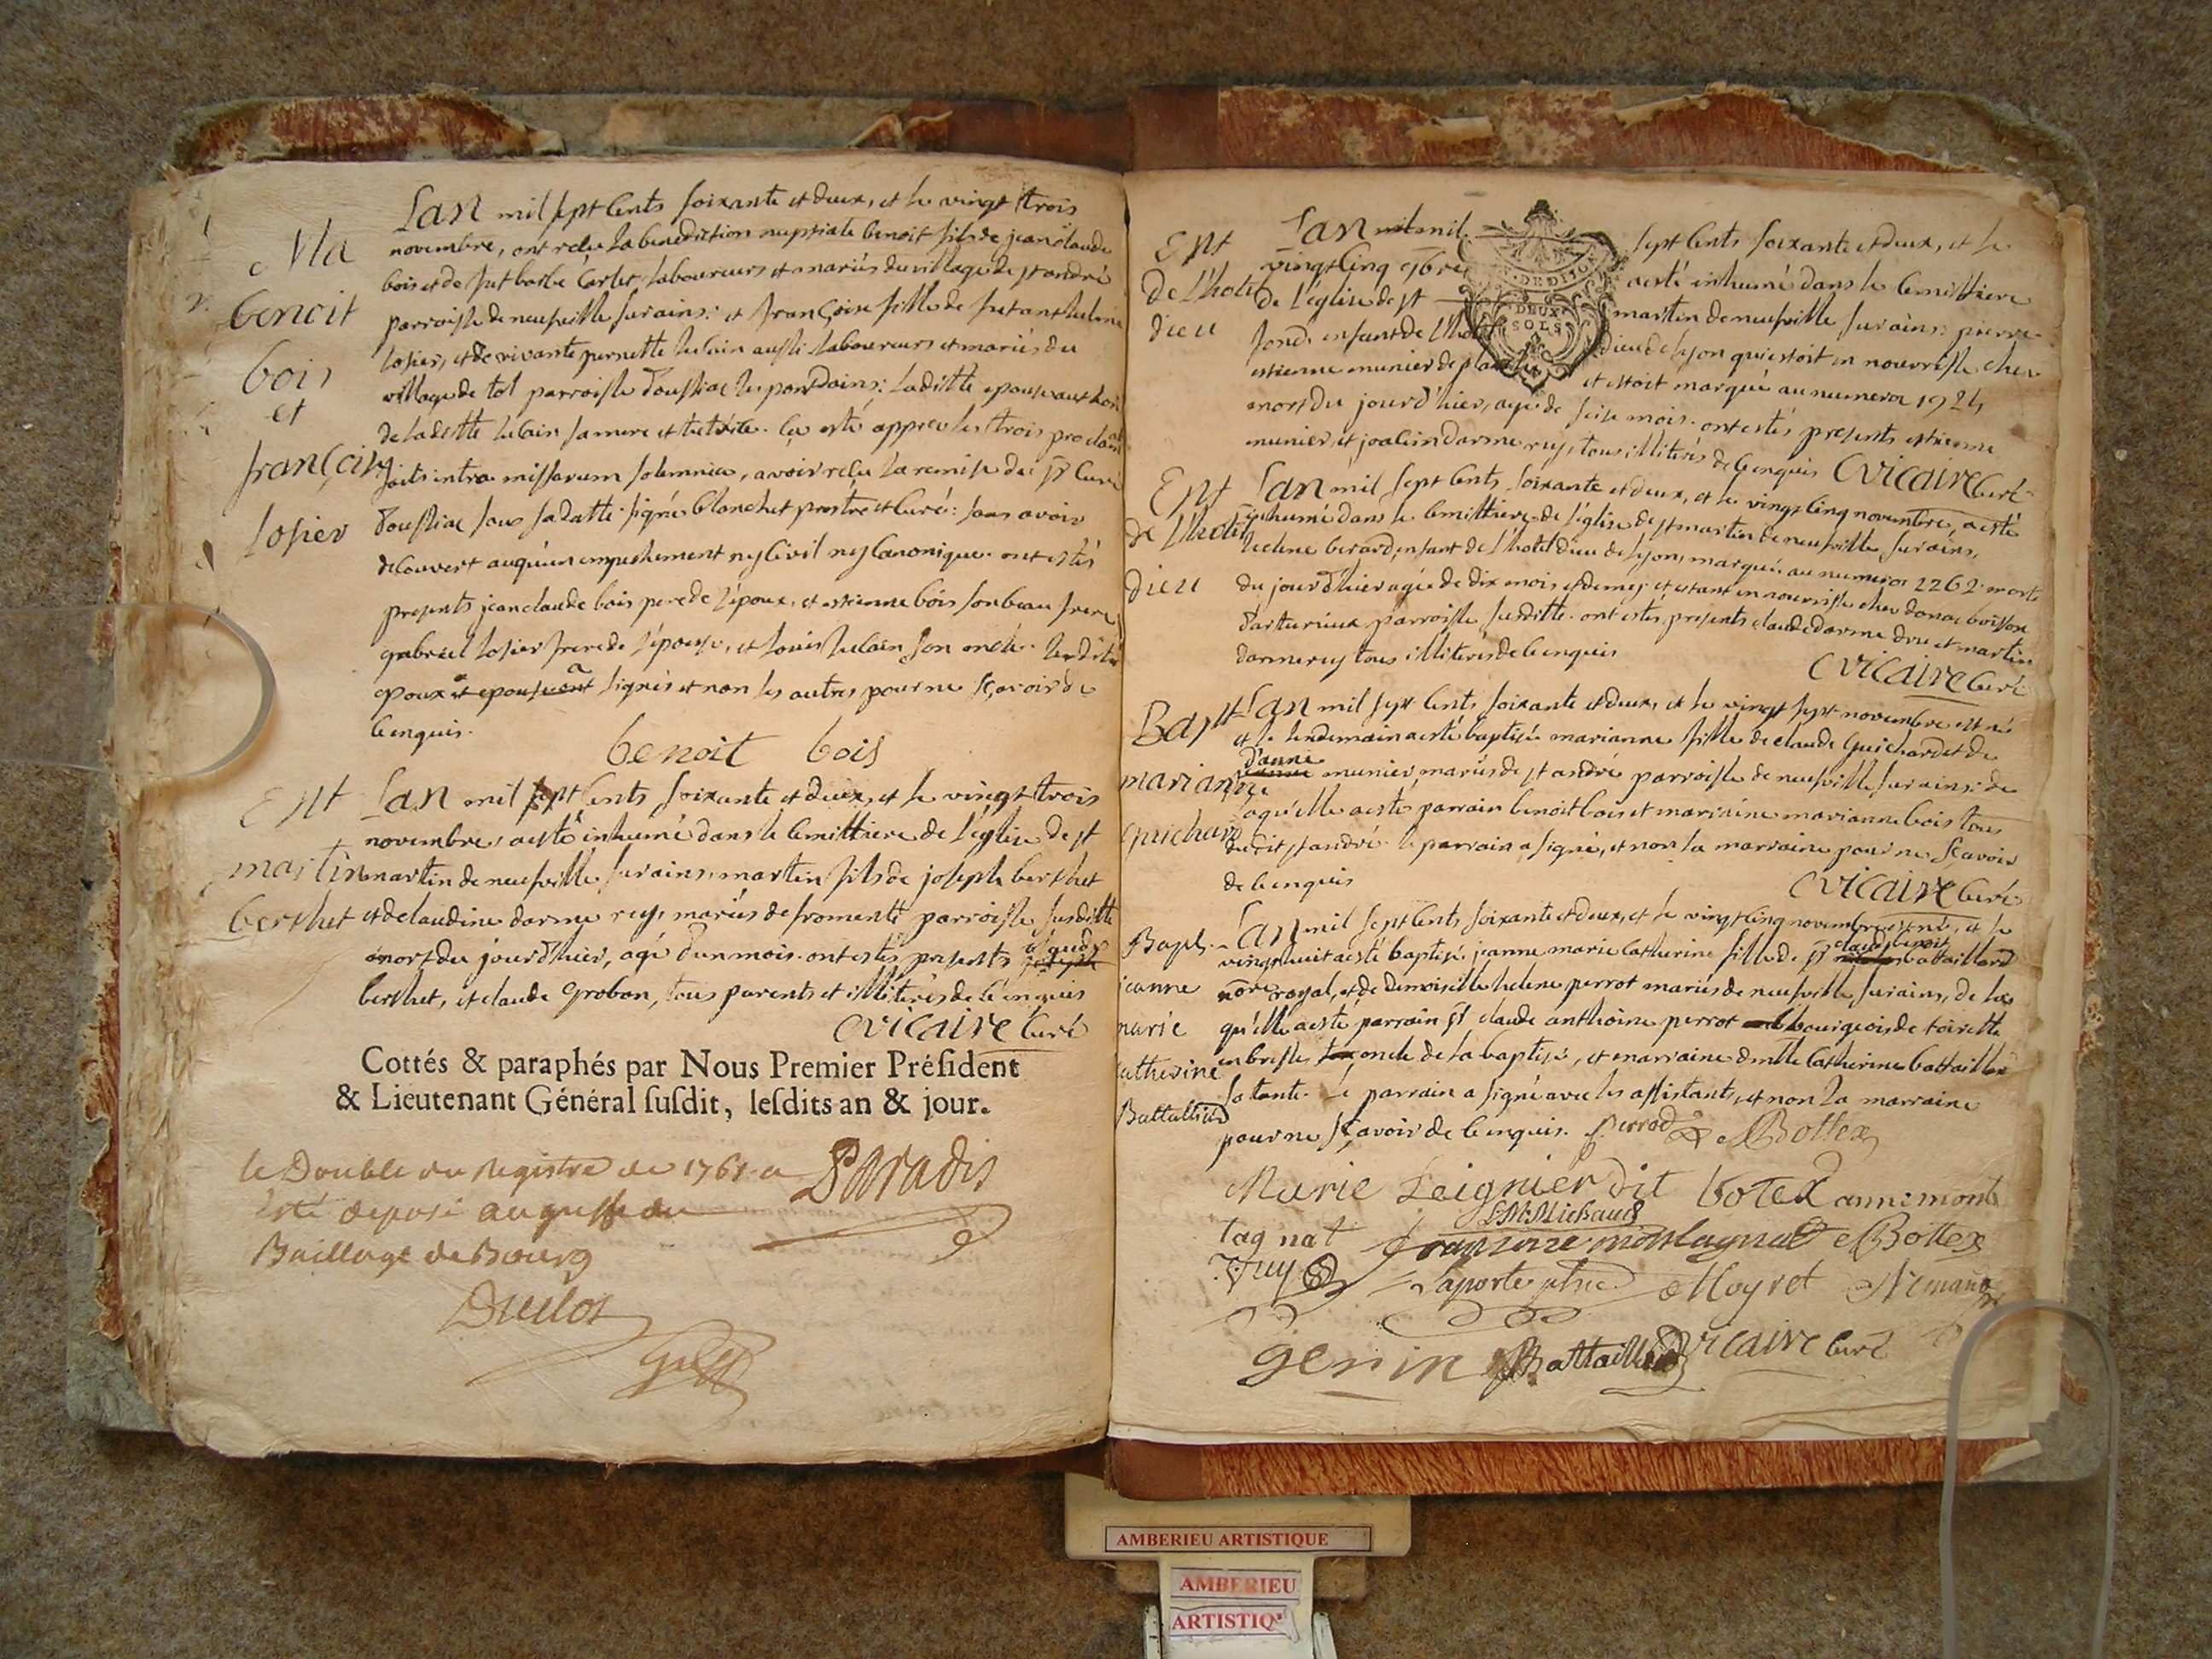 Ma
benoit
bois
et
françoise
losier
Lan mil sept cents soixante et deux, et le vingt trois
novembre, ont reçu la benediction nuptiale benoit fils de jean claude
bois et de fut barbe Carlet, laboureurs et mariés du village de st andré
parroisse de neufville sur ains: et françoise fille de fut anthelme
losier, et de vivante pernette julain aussi laboureurs et mariés du
village de tol parroisse doussiat les pont dains: laditte epouse
de laditte julain sa mere et tutrice. Ce esté apprer les trois proclam
faits intra missarum solemnia, avoir reçu la remise du sr Curé
doussiat sous sa datte signé blanchet prestre et Curé: sans avoir
decouvert auqu'un empechement ny Civil ny Canonique. ont estés
presents jean claude bois pere de l'époux, et estienne bois son beau frere
gabriel losier frere de l'épouse, et louis julain son oncle. lesdits
epoux et epouse ont signés et non les autres pour ne sçavoir de
ce enquis.
benoit bois
Ent
martin
berthet
Lan mil sept cents soixante et deux, et le vingt trois
novembre, a esté inhumé dans le cemittiere de l'église de st
martin de neufville sur ains, martin fils de joseph berthet
et de claudine darmerey, mariés de fromente parroisse susditte
mort du jourd'huier, agé d'un mois. ont estés presents
berthet, et claude groban, tous parents et illiterés de ce enquis
Vicaire Curé
Cottés & paraphés par Nous Premier Président
& Lieutenant Général susdit, lesdits an & jour.
Paradis
le Double du Registre de 1761 a
Esté deposé au greffe du
Baillage de Bourg
Duclos
Ent
de l'hotel
dieu
Lan mil
sept cents soixante et deux, et le
vingt cinq 9bre
a esté inhumé dans le cemittiere
de l'église de st
martin de neufville sur ains: pierre
fond, enfant de l'hotel
dieu de lyon qui estoit en nourrisse chez
estienne munier de
et estoit marqué au numero 1924
mort du jourd'hier, agé de seise mois. ont estés presents estienne
munier, et joachin darmerey, tous illiterés de ce enquis Vicaire Curé
DEUX
SOLS
Ent
de l'hotel
dieu
Lan mil sept cents soixante et deux, et le vingt cinq novembre, a esté
inhumé dans le cemittiere de l'église de st martin de neufville sur ains,
helene berard, enfant de l'hotel dieu de lyon, marqué au numero 2262 morte
du jourd'hier agée de dix mois et demy: et estant en nourrisse chez donat boisson
darturieux parroisse susditte. ont estés presents claude darmedru et martin
darmerey tous illiterés de ce enquis
Vicaire Curé
Bapt
marianne
guichard
Lan mil sept cents soixante et deux, et le vingt sept novembre est né
et le lendemain a esté baptisée marianne fille de claude Guichard et de
d'anne
munier mariés de st andré parroisse de neufville sur ains: de
laqu'elle a esté parrain benoit bois et marraine marianne bois tous
dudit st andré. le parrain a signé, et non la marraine pour ne sçavoir
de ce enquis
Vicaire Curé
Bapt.
jeanne
marie
catherine
Battaillard
Lan mil sept cents soixante et deux, et le vingt cinq novembre est né, et le
claude benoit
vingt huit a esté baptisé jeanne marie catherine fille de sr battaillard
nore royal, et de demoiselle helene perrot mariés de neufville sur ains, de la
qu'elle a esté parrain sr claude anthoine perrot bourgeois de toirette
en bresse oncle de la baptisé, et marraine dmlle Catherine battaillard
sa tante. le parrain a signé avec les assistants, et non la marraine
pour ne sçavoir de ce enquis. Perrod Bottex
Marie Leignier dit botex anne mont
tagnat
L M Michaud
françoise montagnat Bottex
Laporte Moyret Armand
genin Battaillard Vicaire Curé
AMBERIEU ARTISTIQUE
AMBERIEU
ARTISTIQ